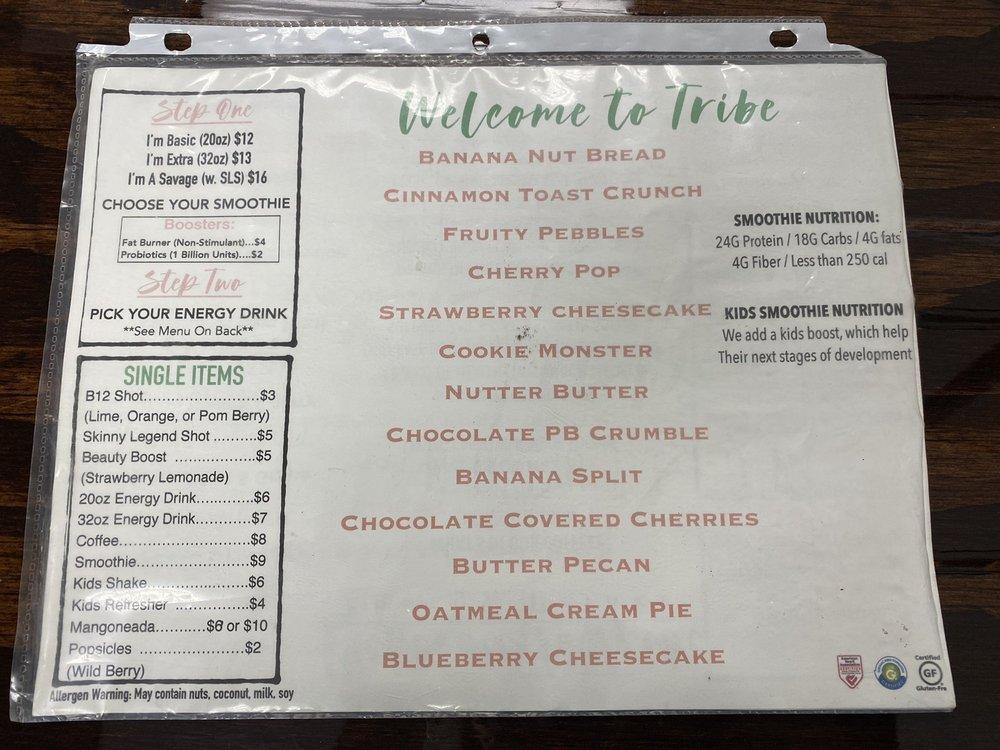 Step One
I'm Basic (20oz) $12
I'm Extra (32oz) $13
I'm A Savage (w. SLS) $16
CHOOSE YOUR SMOOTHIE
Boosters:
Fat Burner (Non-Stimulant)...$4
Probiotics (1 Billion Units)....$2
Step Two
PICK YOUR ENERGY DRINK
**See Menu On Back**
SINGLE ITEMS
B12 Shot..........................$3
(Lime, Orange, or Pom Berry)
Skinny Legend Shot ..........$5
Beauty Boost ..................$5
(Strawberry Lemonade)
20oz Energy Drink.............$6
32oz Energy Drink.............$7
Coffee..............................$8
Smoothie..........................$9
Kids Shake.......................$6
Kids Refresher ................$4
Mangoneada...........$6 or $10
Popsicles .......................$2
(Wild Berry)
Allergen Warning: May contain nuts, coconut, milk, soy
Welcome to Tribe
BANANA NUT BREAD
CINNAMON TOAST CRUNCH
FRUITY PEBBLES
CHERRY POP
STRAWBERRY CHEESECAKE
COOKIE MONSTER
NUTTER BUTTER
CHOCOLATE PB CRUMBLE
BANANA SPLIT
CHOCOLATE COVERED CHERRIES
BUTTER PECAN
OATMEAL CREAM PIE
BLUEBERRY CHEESECAKE
SMOOTHIE NUTRITION:
24G Protein / 18G Carbs / 4G fats
4G Fiber / Less than 250 cal
KIDS SMOOTHIE NUTRITION
We add a kids boost, which help
Their next stages of development
Certified
GF
Gluten-Fre